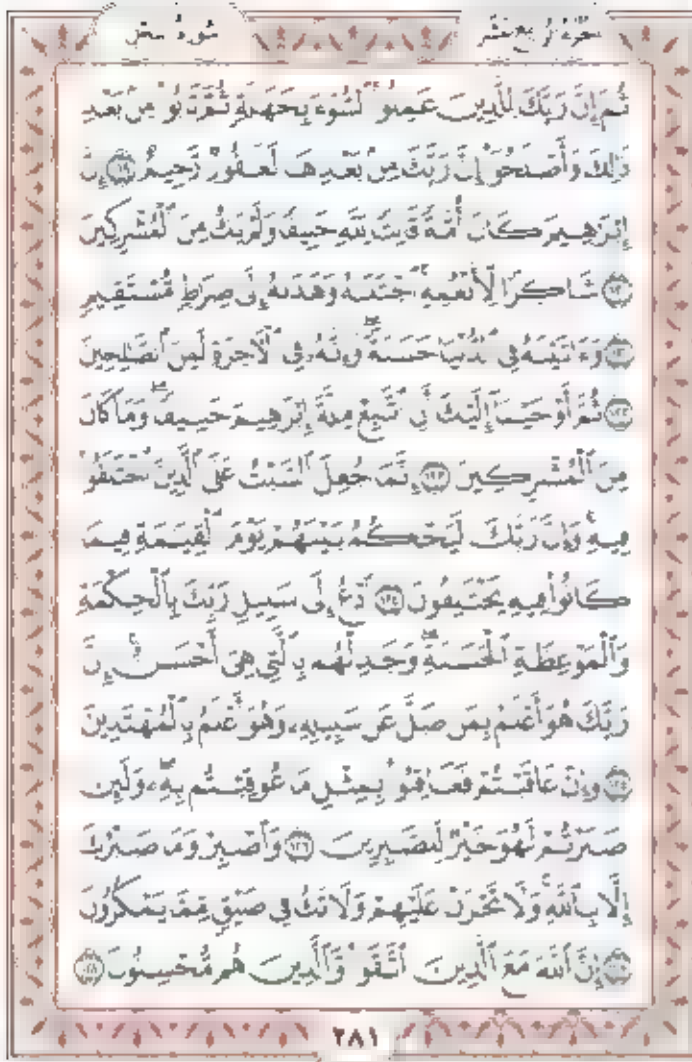 الجزء الرابع عشر
سورة النحل
ثُمَّ إِنَّ رَبَّكَ لِلَّذِينَ عَمِلُوا۟ ٱلسُّوٓءَ بِجَهَـٰلَةٍ ثُمَّ تَابُوا۟ مِنۢ بَعْدِ
ذَٰلِكَ وَأَصْلَحُوٓا۟ إِنَّ رَبَّكَ مِنۢ بَعْدِهَا لَغَفُورٌ رَّحِيمٌ ١١٩ إِنَّ
إِبْرَٰهِيمَ كَانَ أُمَّةً قَانِتًا لِّلَّهِ حَنِيفًا وَلَمْ يَكُ مِنَ ٱلْمُشْرِكِينَ
١٢٠ شَاكِرًا لِّأَنْعُمِهِ ۚ ٱجْتَبَىٰهُ وَهَدَىٰهُ إِلَىٰ صِرَٰطٍ مُّسْتَقِيمٍ
١٢١ وَءَاتَيْنَـٰهُ فِى ٱلدُّنْيَا حَسَنَةً ۖ وَإِنَّهُۥ فِى ٱلْـَٔاخِرَةِ لَمِنَ ٱلصَّـٰلِحِينَ
١٢٢ ثُمَّ أَوْحَيْنَآ إِلَيْكَ أَنِ ٱتَّبِعْ مِلَّةَ إِبْرَٰهِيمَ حَنِيفًا ۖ وَمَا كَانَ
مِنَ ٱلْمُشْرِكِينَ ١٢٣ إِنَّمَا جُعِلَ ٱلسَّبْتُ عَلَى ٱلَّذِينَ ٱخْتَلَفُوا۟
فِيهِ ۚ وَإِنَّ رَبَّكَ لَيَحْكُمُ بَيْنَهُمْ يَوْمَ ٱلْقِيَـٰمَةِ فِيمَا
كَانُوا۟ فِيهِ يَخْتَلِفُونَ ١٢٤ ٱدْعُ إِلَىٰ سَبِيلِ رَبِّكَ بِٱلْحِكْمَةِ
وَٱلْمَوْعِظَةِ ٱلْحَسَنَةِ ۖ وَجَـٰدِلْهُم بِٱلَّتِى هِىَ أَحْسَنُ ۚ إِنَّ
رَبَّكَ هُوَ أَعْلَمُ بِمَن ضَلَّ عَن سَبِيلِهِۦ ۖ وَهُوَ أَعْلَمُ بِٱلْمُهْتَدِينَ
١٢٥ وَإِنْ عَاقَبْتُمْ فَعَاقِبُوا۟ بِمِثْلِ مَا عُوقِبْتُم بِهِۦ ۖ وَلَئِن
صَبَرْتُمْ لَهُوَ خَيْرٌ لِّلصَّـٰبِرِينَ ١٢٦ وَٱصْبِرْ وَمَا صَبْرُكَ
إِلَّا بِٱللَّهِ ۚ وَلَا تَحْزَنْ عَلَيْهِمْ وَلَا تَكُ فِى ضَيْقٍ مِّمَّا يَمْكُرُونَ
١٢٧ إِنَّ ٱللَّهَ مَعَ ٱلَّذِينَ ٱتَّقَوا۟ وَّٱلَّذِينَ هُم مُّحْسِنُونَ ١٢٨
٢٨١